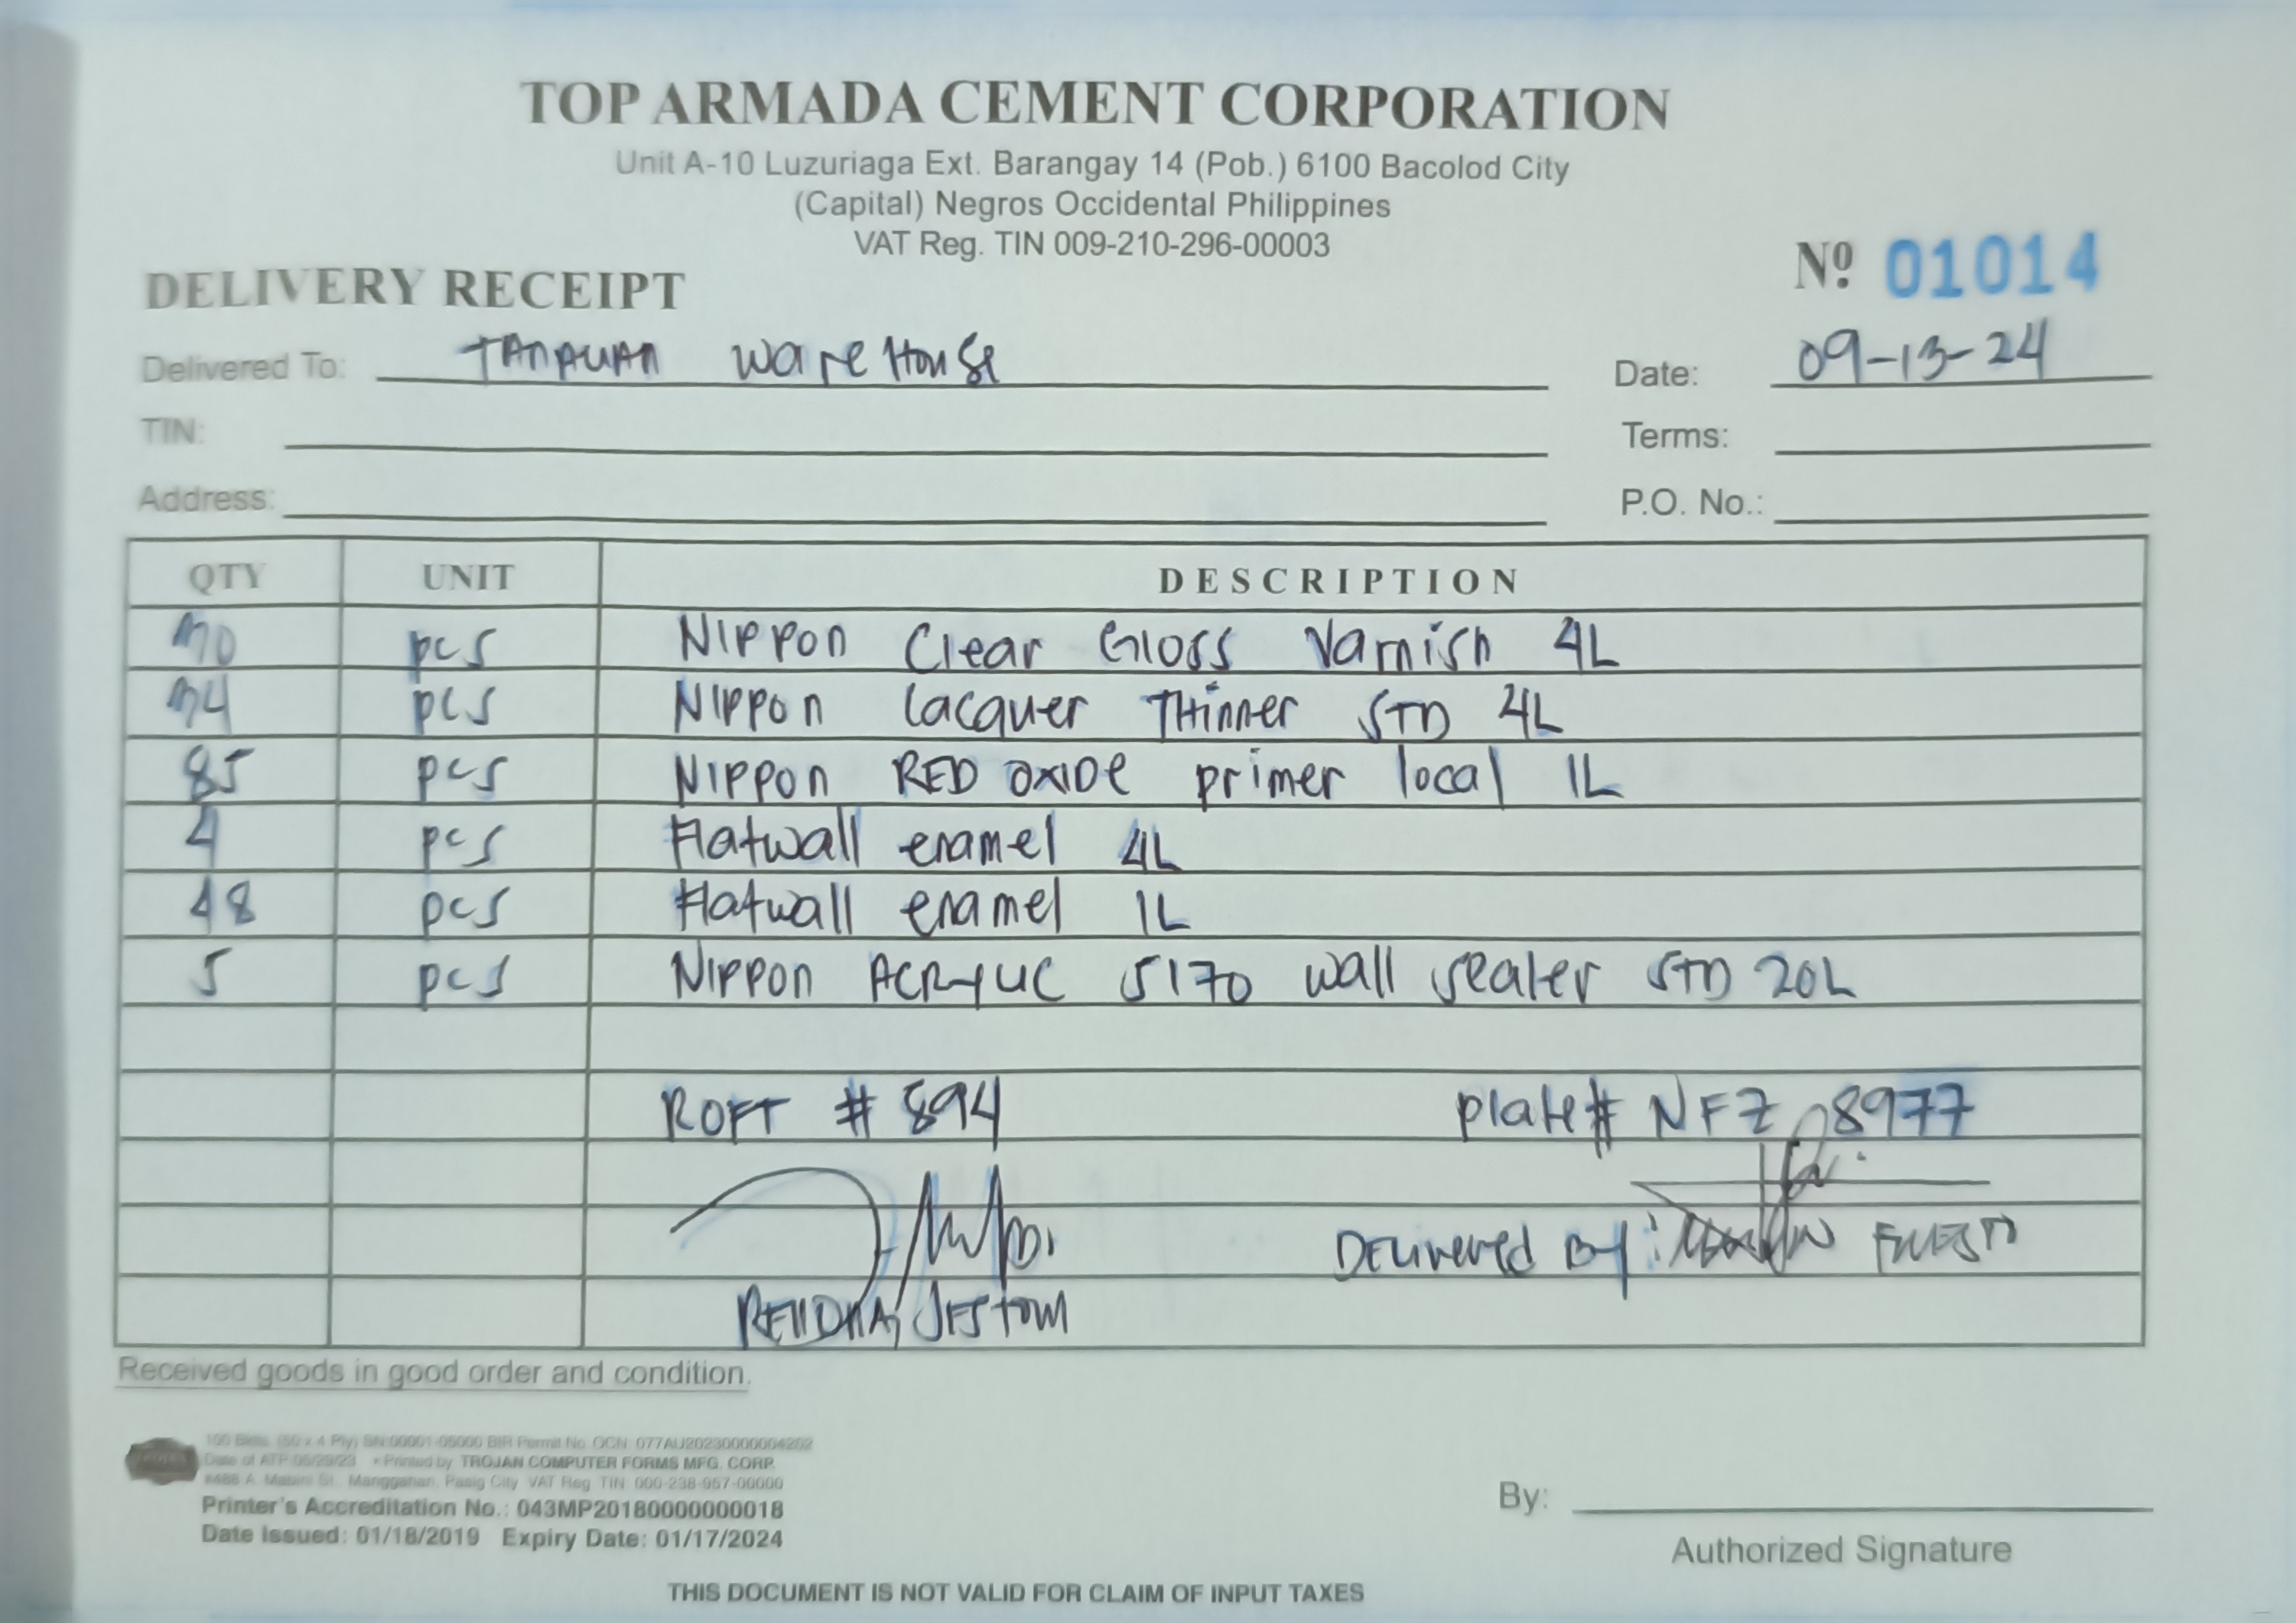 TOP ARMADA CEMENT CORPORATION
Unit A-10 Luzuriaga Ext. Barangay 14 (Pob.) 6100 Bacolod City
(Capital) Negros Occidental Philippines
VAT Reg. TIN 009-210-296-00003
DELIVERY RECEIPT
Nº 01014
Delivered To: TANAUAN WareHouse
Date: 09-13-24
TIN:
Terms:
Address:
P.O. No.:
QTY UNIT DESCRIPTION
pcs Nippon Clear Gloss Varnish 4L
pcs Nippon Lacquer THinner STD 4L
85 pcs Nippon RED OXIDe primer local 1L
4 pcs Flatwall enamel 4L
48 pcs Flatwall enamel 1L
5 pcs Nippon ACRyLIC 5170 wall sealer STD 20L
ROFT # 894 plate# NFZ 8977
Delivered By:
Received goods in good order and condition.
100 Bklts. (50 x 4 Ply) SN:00001-05000 BIR Permit No. OCN: 077AU20230000004202
Date of ATP 05/29/23 • Printed by TROJAN COMPUTER FORMS MFG. CORP.
#488 A. Mabini St., Manggahan, Pasig City VAT Reg. TIN: 000-238-957-00000
Printer's Accreditation No.: 043MP20180000000018
Date Issued: 01/18/2019 Expiry Date: 01/17/2024
By:
Authorized Signature
THIS DOCUMENT IS NOT VALID FOR CLAIM OF INPUT TAXES